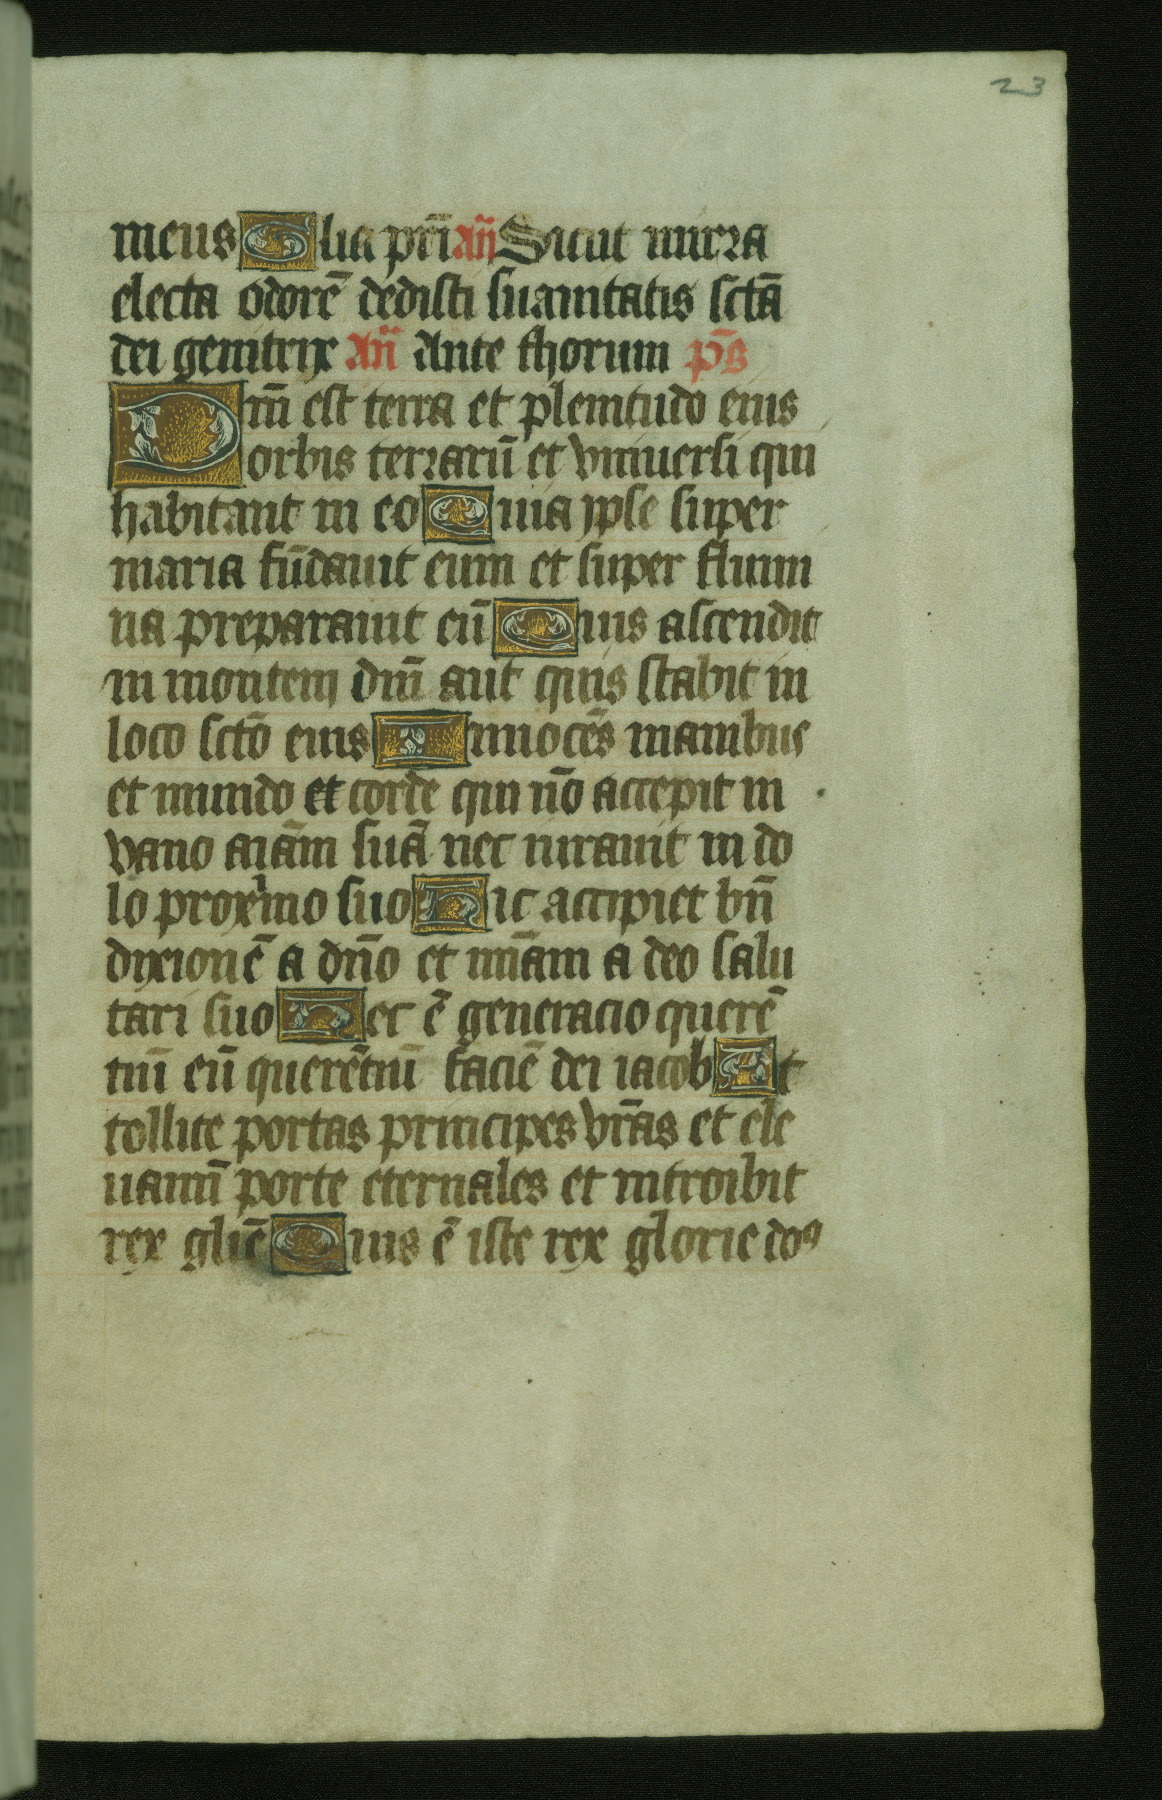 23
meus Glia pr̄i Añ Sicut mirra
electa odorē dedisti suauitatis sctā
dei genitrix Añ Ante thorum ps̄
Dn̄i est terra et plenitudo eius
orbis terrarū et vniuersi qui
habitant in eo Quia ipse super
maria fūdauit eum et super flumi
na preparauit eū Quis ascendit
in montem dn̄i aut quis stabit in
loco sctō eius Innocēs manibus
et mundo et corde qui nō accepit in
vano aiām suā nec iurauit in do
lo proximo suo Hic accipiet bn̄
dixionē a dn̄o et mīam a deo salu
tari suo Hec ē generacio querē
tiū eū querētiū faciē dei iacob At
tollite portas principes vr̄as et ele
uamī porte eternales et introibit
rex gliē Quis ē iste rex glorie dos